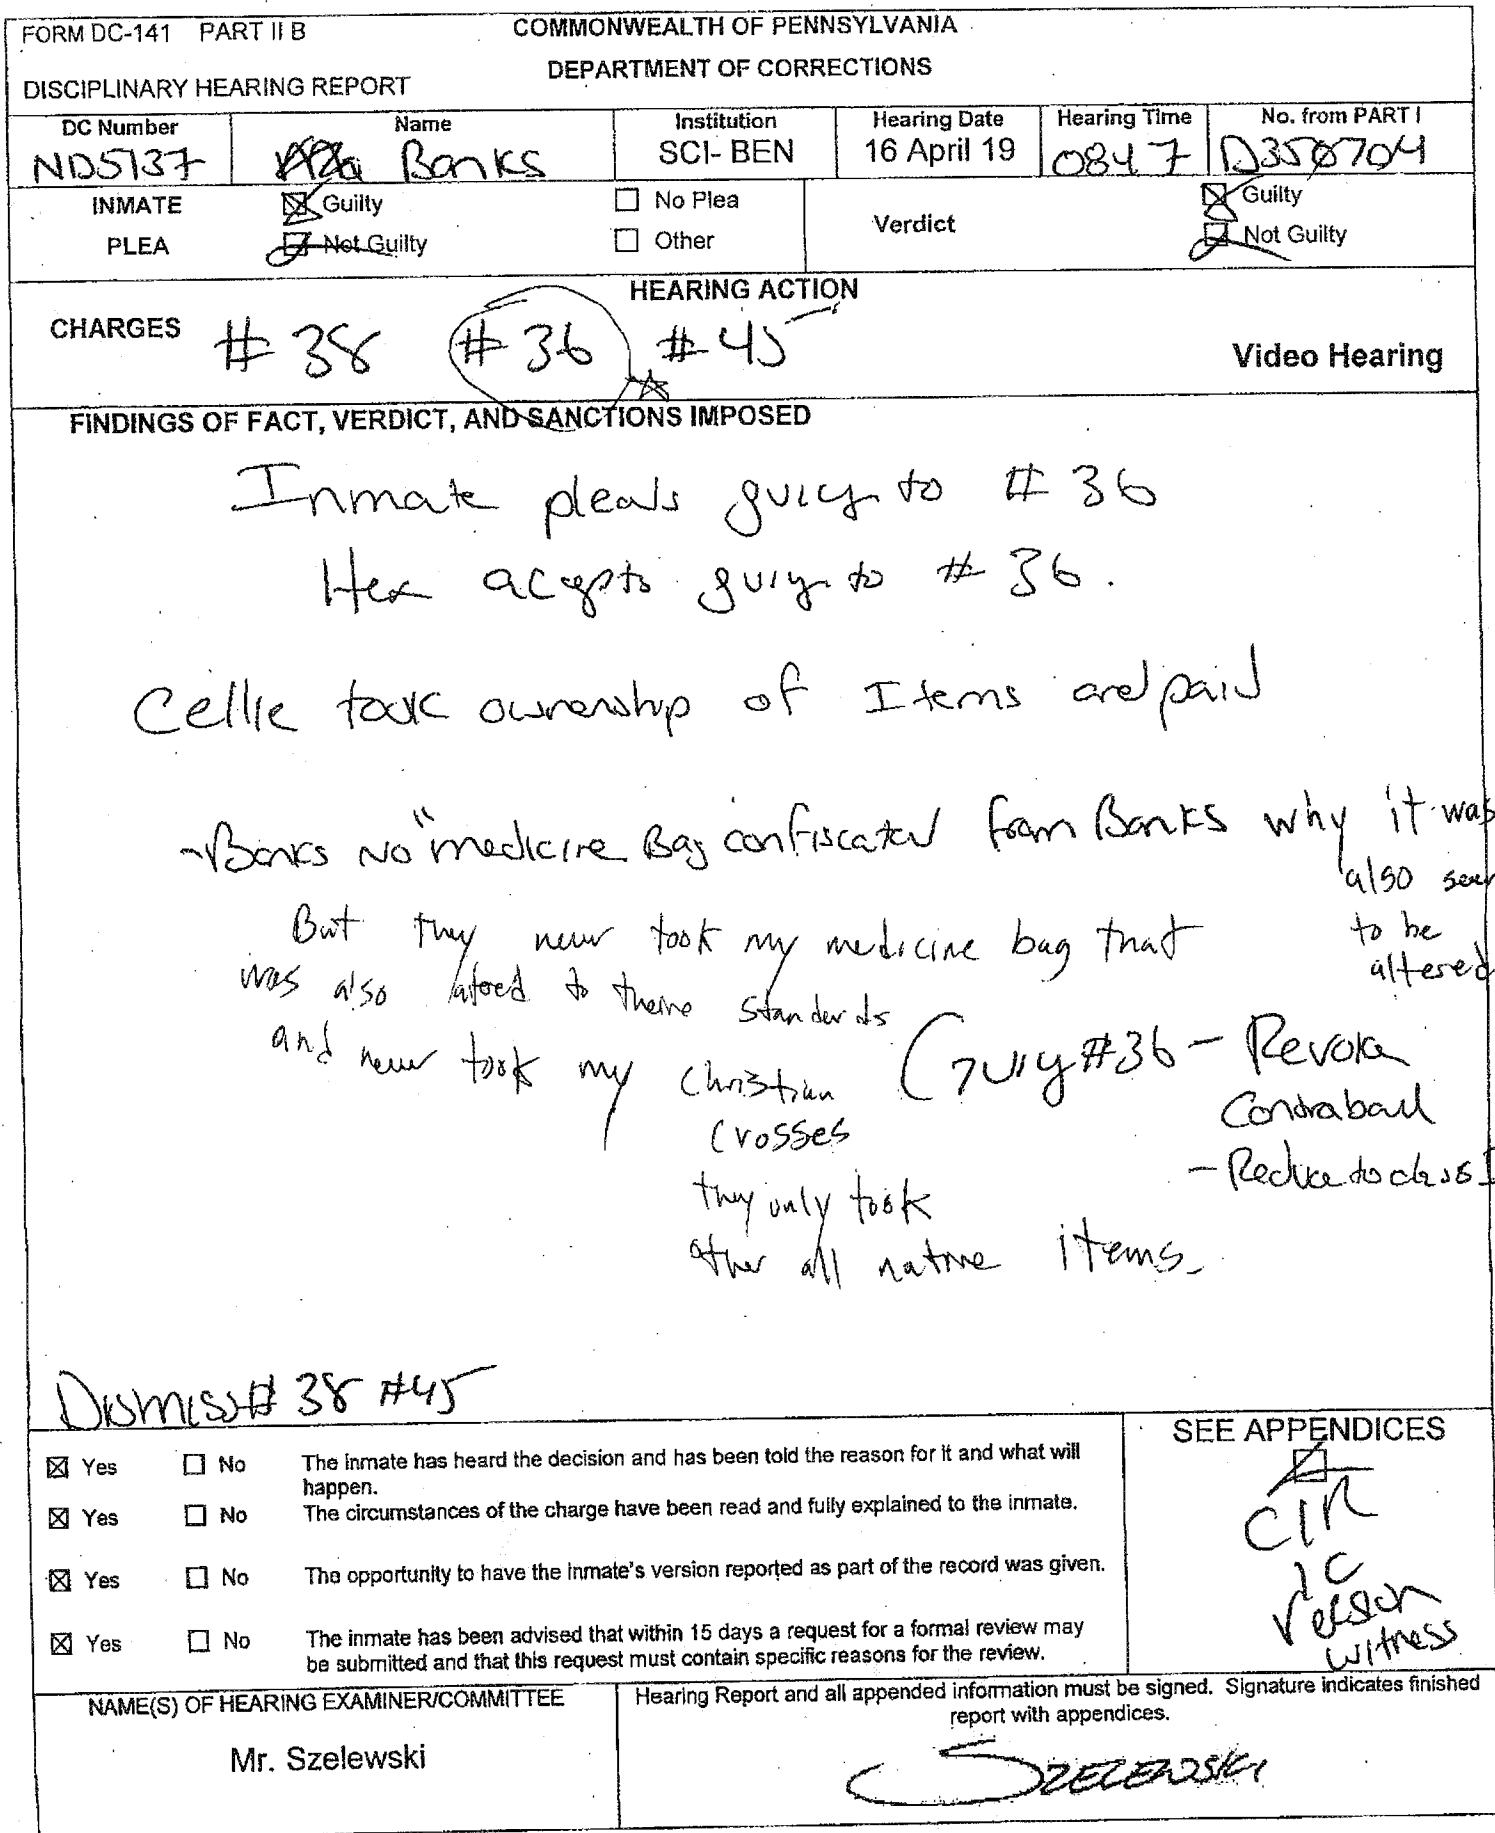 FORM DC-141 PART II B
COMMONWEALTH OF PENNSYLVANIA
DISCIPLINARY HEARING REPORT
DEPARTMENT OF CORRECTIONS
DC Number
ND5137
Name
Banks
Institution
SCI- BEN
Hearing Date
16 April 19
Hearing Time
0847
No. from PART I
D350704
INMATE
PLEA
☒ Guilty
Not Guilty
☐ No Plea
☐ Other
Verdict
☒ Guilty
Not Guilty
HEARING ACTION
CHARGES # 38 # 36 # 45
Video Hearing
FINDINGS OF FACT, VERDICT, AND SANCTIONS IMPOSED
Inmate pleads guilty to # 36
Hex accepts guilty to # 36.
Cellie took ownership of Items and paid
- Banks No "medicine Bag confiscated from Banks why it was
also
to be
altered
But they never took my medicine bag that
was also to there standerds
and never took my Christian
Crosses
they only took
other all native items.
Guilty #36 - Revoke
Contraband
- Reduce to class I
Dismiss # 38 #45
☒ Yes ☐ No The inmate has heard the decision and has been told the reason for it and what will
happen.
☒ Yes ☐ No The circumstances of the charge have been read and fully explained to the inmate.
☒ Yes ☐ No The opportunity to have the inmate's version reported as part of the record was given.
☒ Yes ☐ No The inmate has been advised that within 15 days a request for a formal review may
be submitted and that this request must contain specific reasons for the review.
SEE APPENDICES
CIR
IC
Version
witness
NAME(S) OF HEARING EXAMINER/COMMITTEE
Mr. Szelewski
Hearing Report and all appended information must be signed. Signature indicates finished
report with appendices.
SZELEWSKI